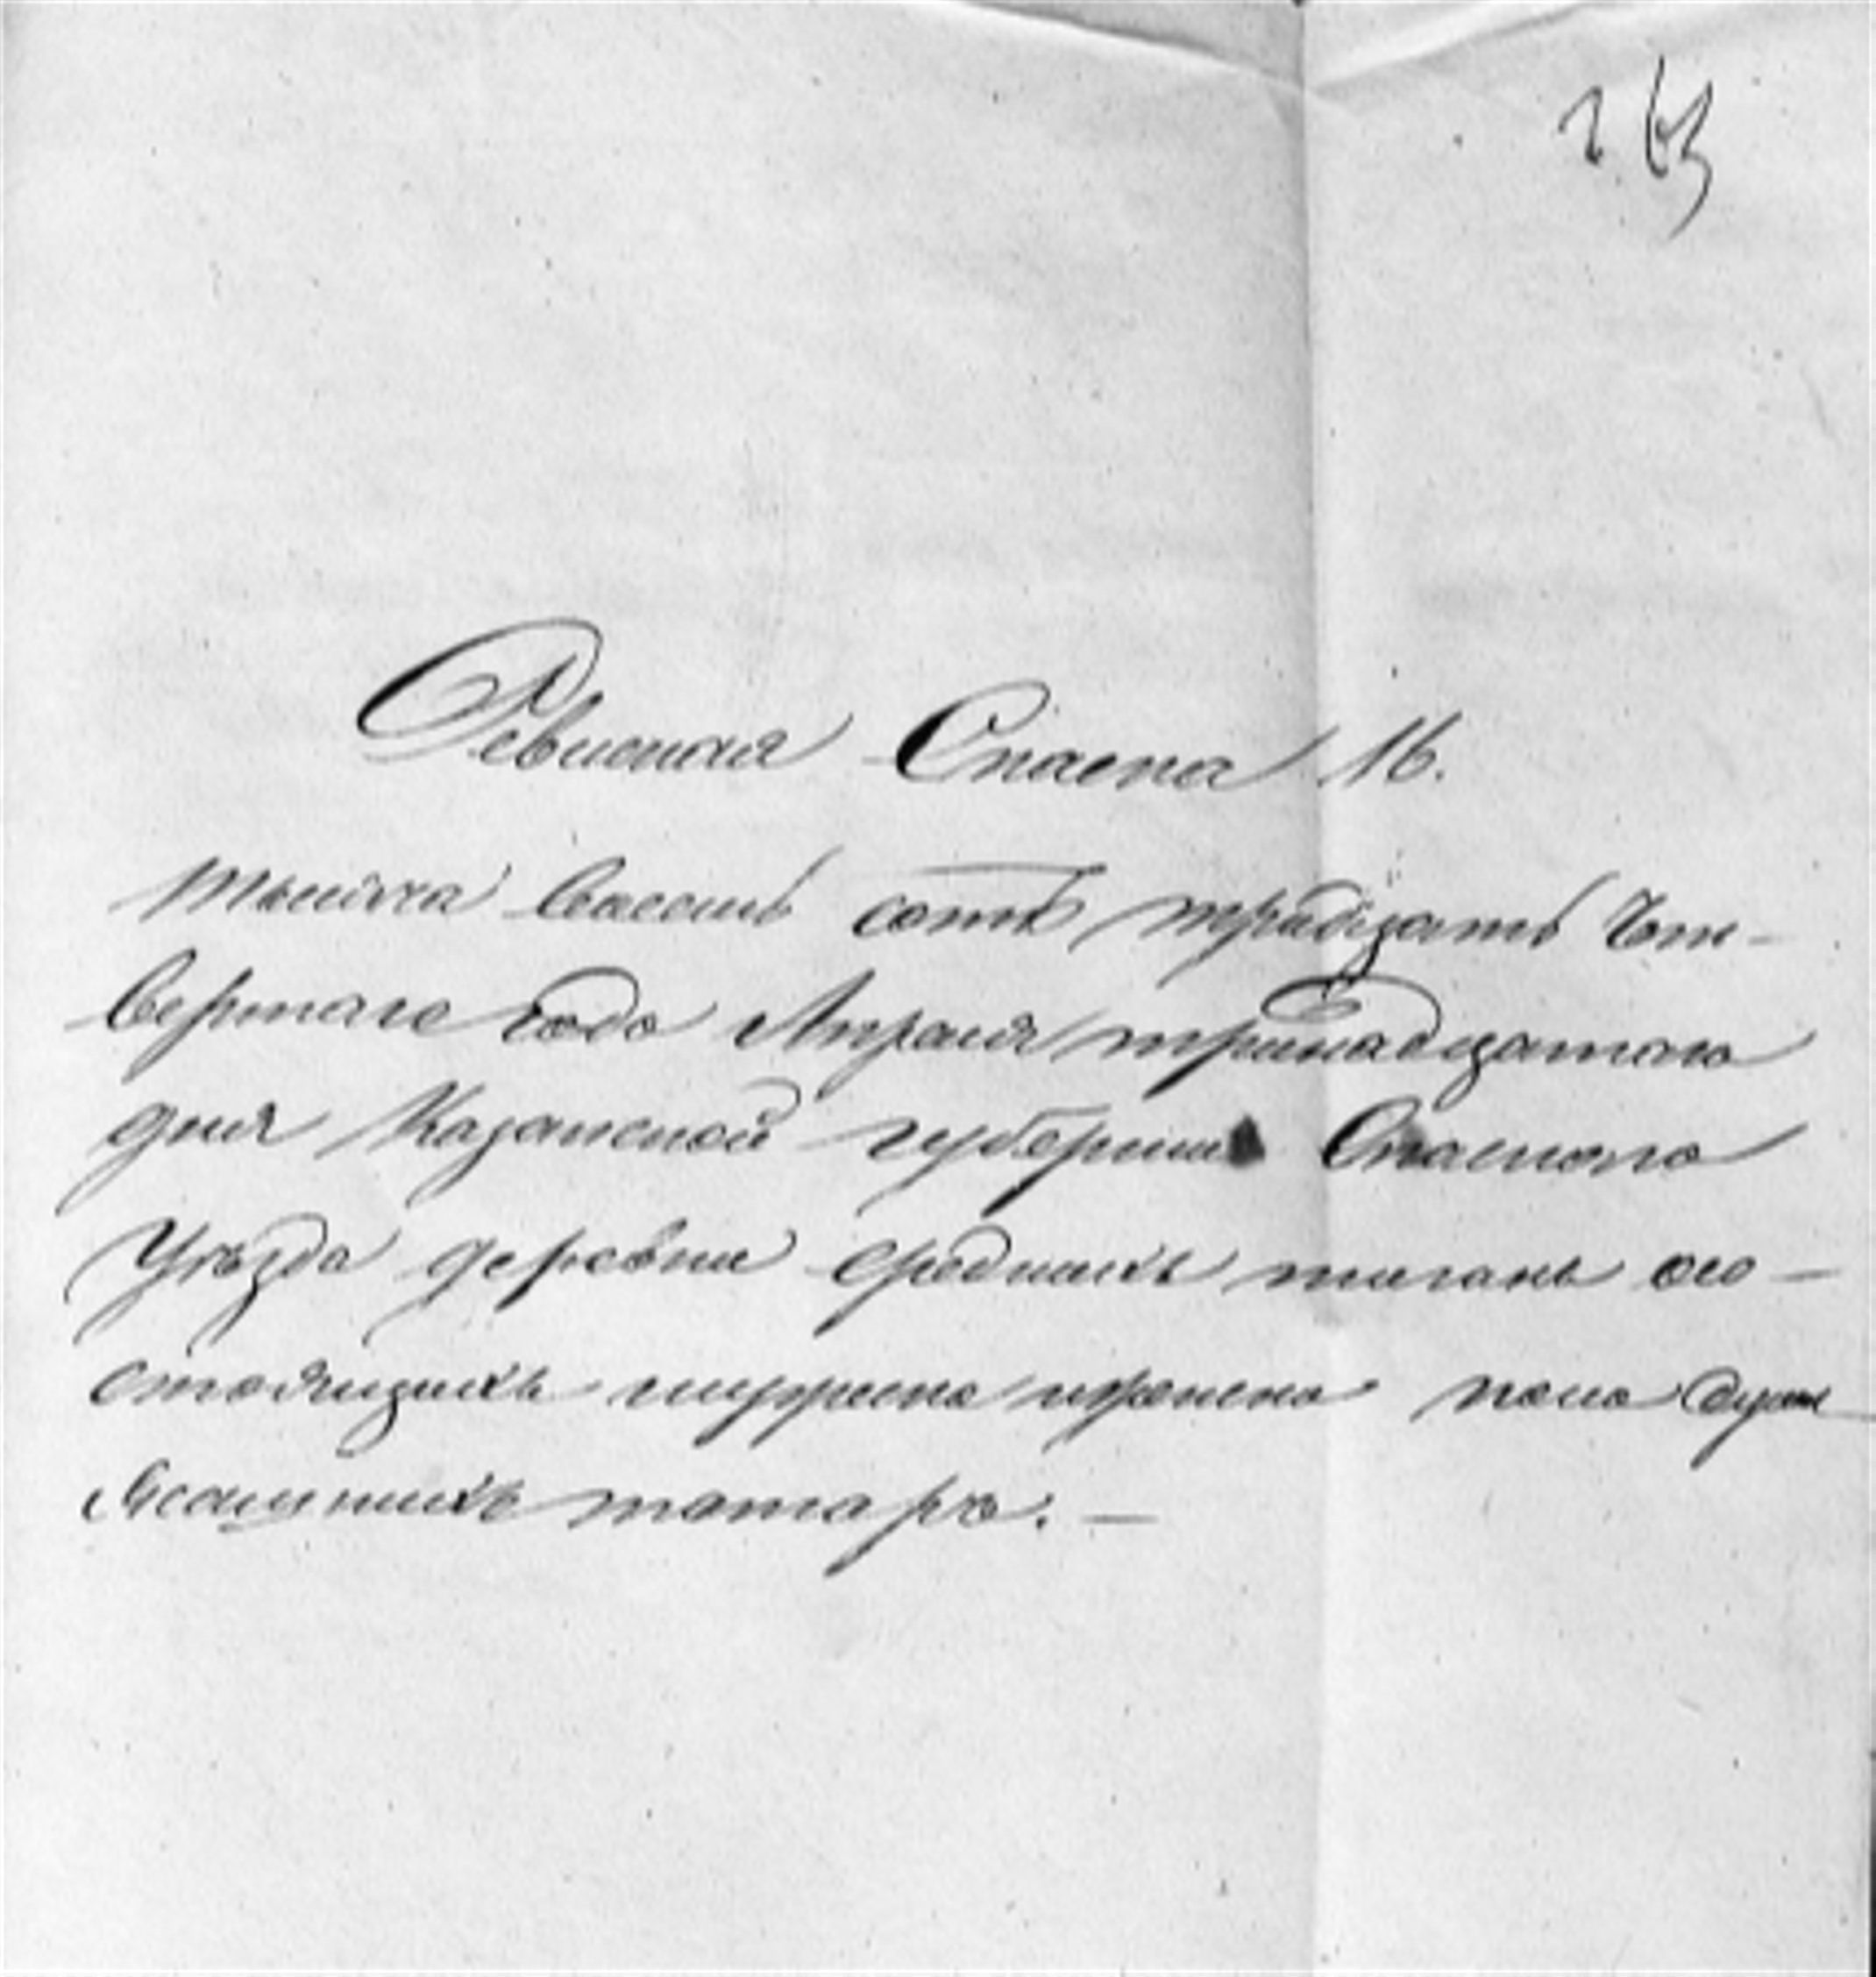 263
Ревиская Скаска 16.
тысяча восемь сотъ тридцать чет-
вертаго года Апреля тринадцатаго
дня Казанской губернии Спаскаго
Уѣзда деревни средникъ тиганъ со-
стоящихъ мужеска и женска пола душъ
Ясашныхъ татаръ. —